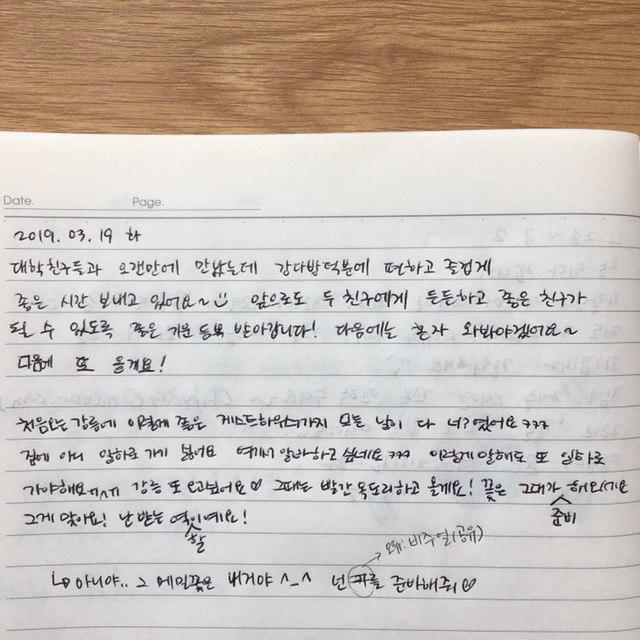 Date. Page.
2019. 03. 19 화
대학친구들과 오랜만에 만났는데 강다방덕분에 편하고 즐겁게
좋은 시간 보내고 있어요~ 앞으로도 두 친구에게 든든하고 좋은 친구가
될 수 있도록 좋은 기운 듬뿍 받아갑니다! 다음에는 혼자 와봐야겠어요~
다음에 또 올게요!
처음오는 강릉에 이렇게 좋은 게스트하우스까지 모든 날이 다 너?였어요ㅋㅋㅋ
집에 아니 일하로 가기 싫어요 여기서 알바하고 싶네요ㅋㅋㅋ 이렇게 말해도 또 일하로
가야해요ㅠㅠ 강릉 또 오고싶어요♡ 그때는 빨간 목도리하고 올게요! 꽃은 그대가 해오세요
준비
그게 맞아요! 난 받는 역이예요!
할
↳ 아니야.. 그 메밀꽃은 내거야 ^_^ 넌 를 준비해줘♡
→ 오류: 비주얼(공유)